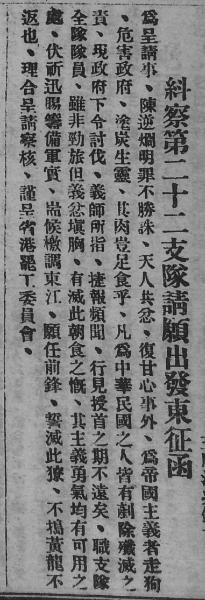 糾察第二十二支隊請願出發東征函
爲呈請事、陳逆烱明罪不勝誅、天人共忿、復甘心事外、爲帝國主義者走狗
、危害政府、塗炭生靈、其肉豈足食乎、凡爲中華民國之人皆有剷除殲滅之
責、現政府下令討伐、義師所指、捷報頻聞、行見授首之期不遠矣、職支隊
全隊隊員、雖非勁旅但義忿塡胸、有滅此朝食之慨、其主義勇氣均有可用之
處、伏祈迅賜籌備軍實、耑候檄調東江、願任前鋒、誓滅此獠、不搗黃龍不
返也、理合呈請察核、謹呈省港罷工委員會、